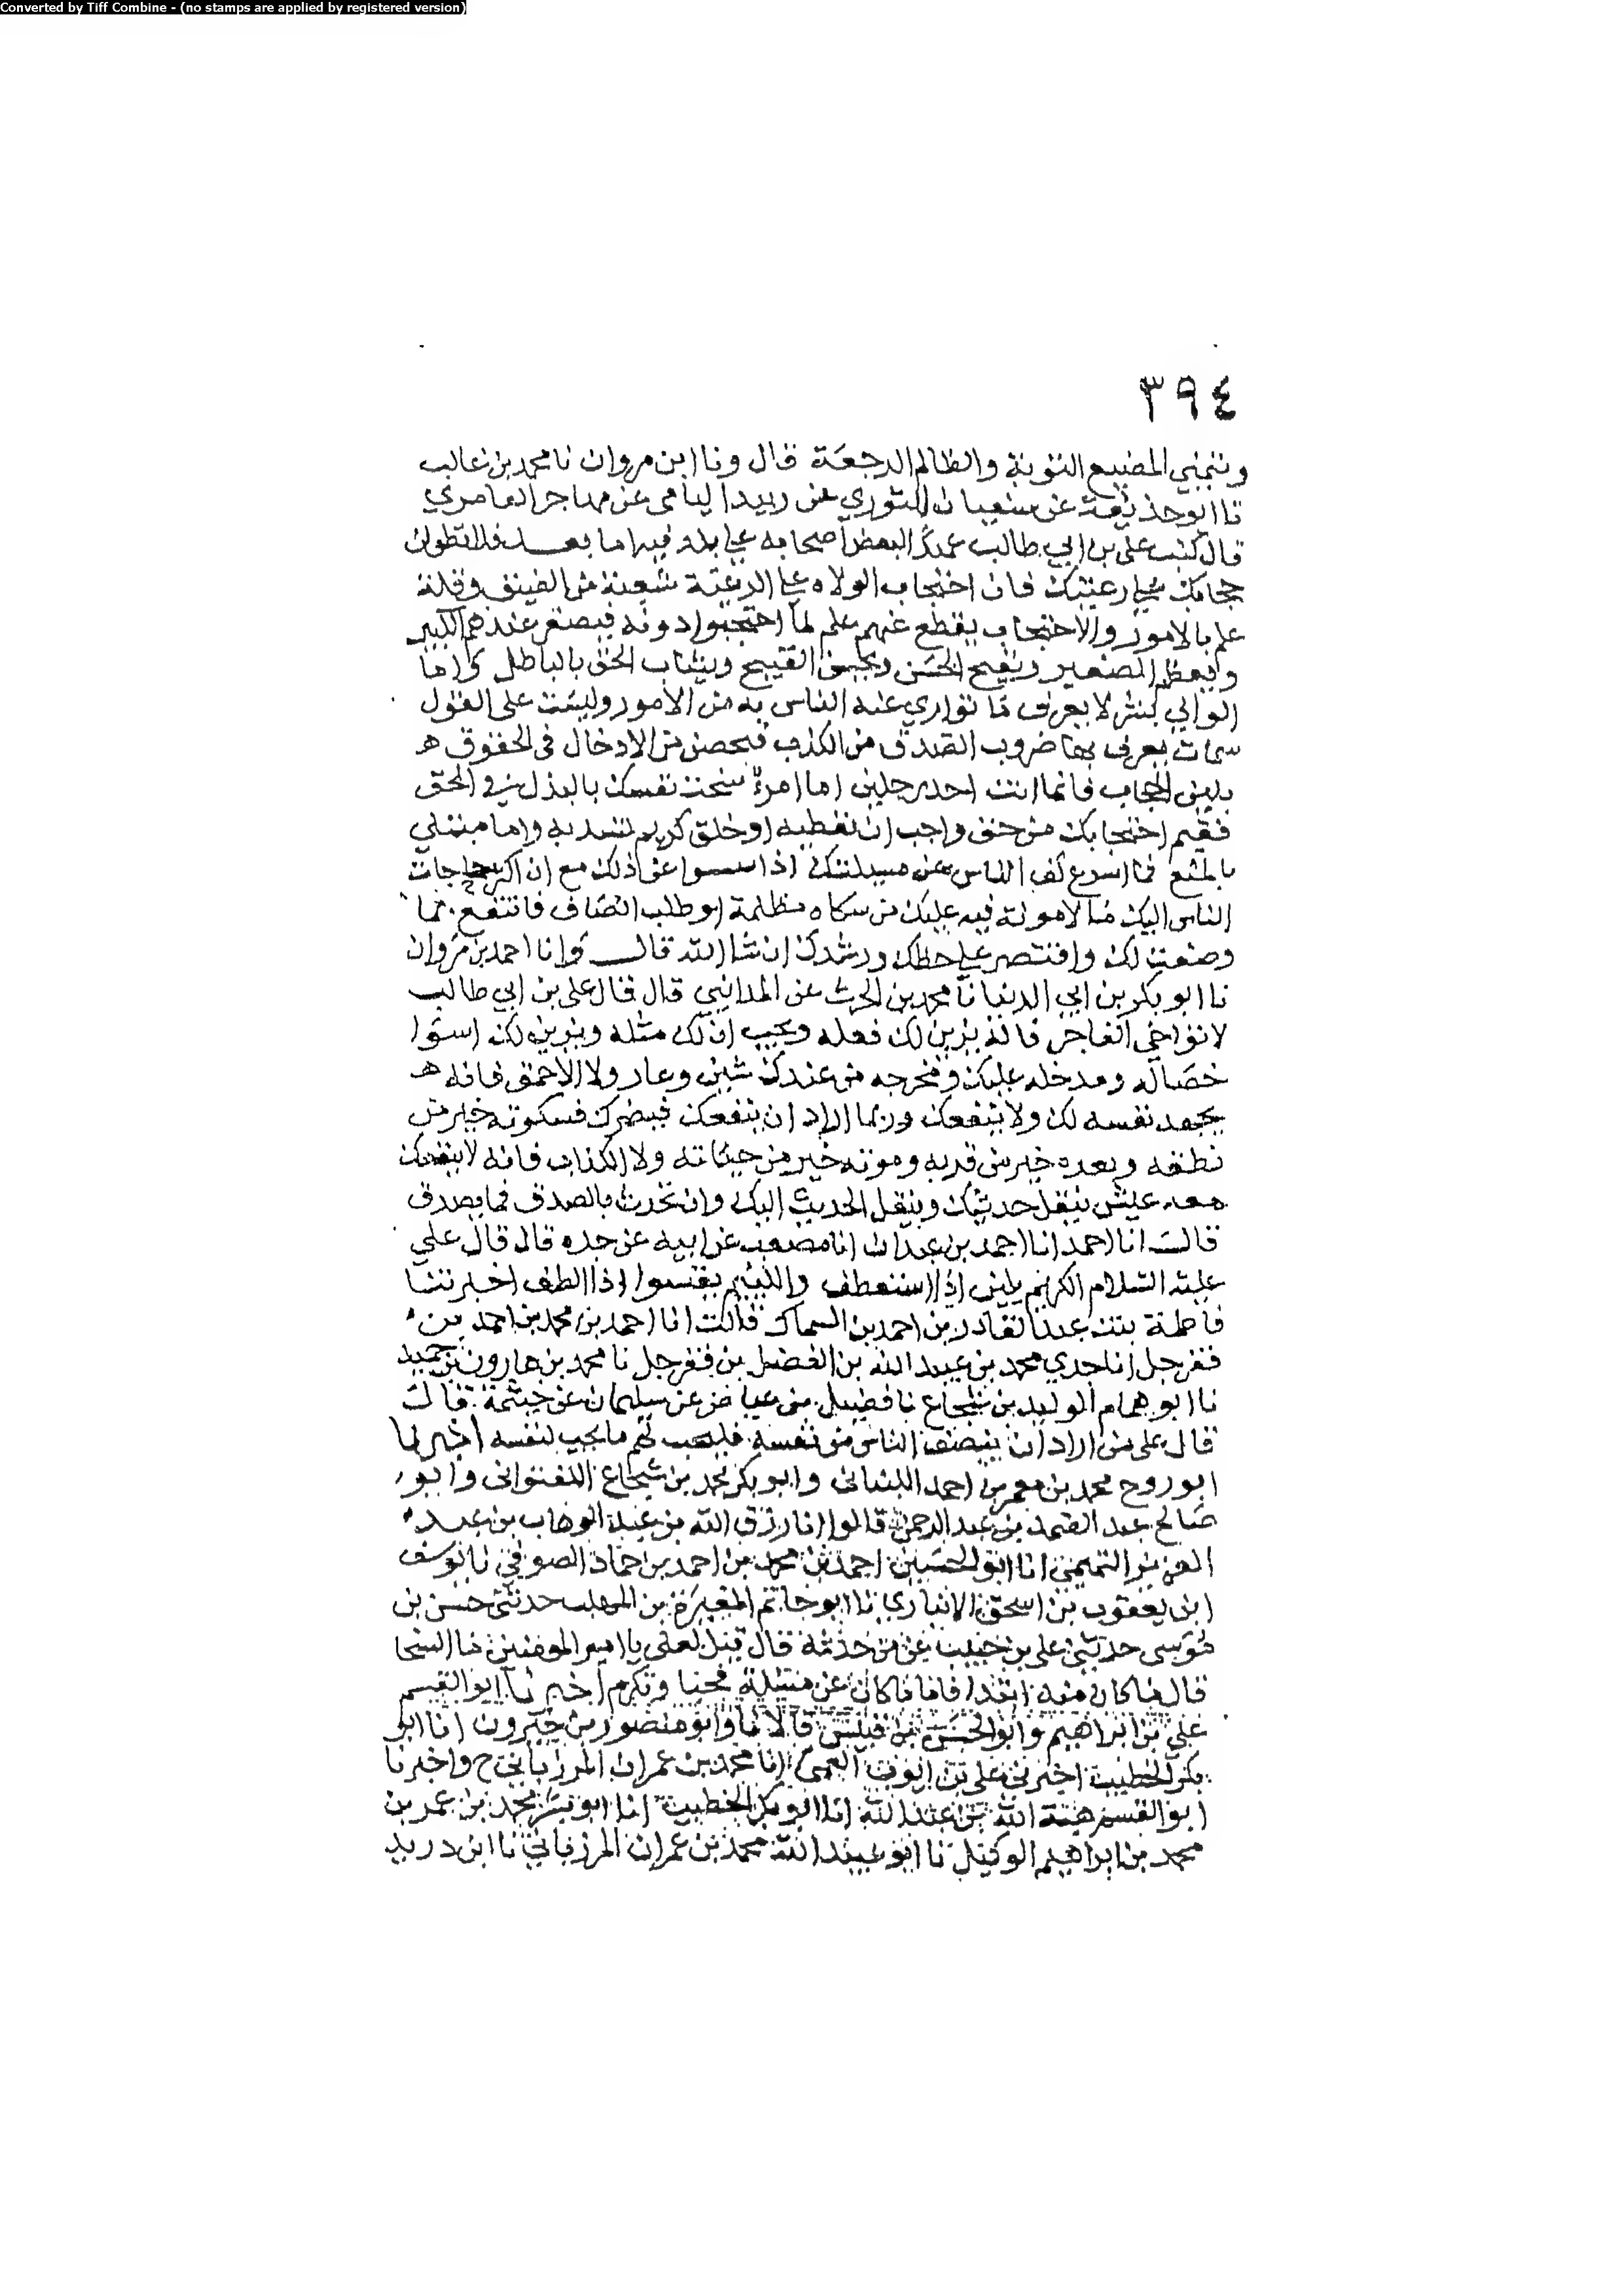 Converted by Tiff Combine - (no stamps are applied by registered version)
٣٩٤
ويتمني المضيع التوبة والظالم الرجعة قال ونا ابن مروان نا محمد بن غالب
نا ابو حذيفة عن سفيان الثوري عن زبيد اليامى عن مهاجر العامري
قال كتب علي بن ابي طالب عهدا لبعض اصحابه على بلد فيه اما بعد فلا تطولن
حجابك على رعيتك فان احتجاب الولاه على الرعية شعبة من الضيق وقلة
علم بالامور والاحتجاب يقطع عنهم علم ما احتجبوا دونه فيصغر عندهم الكبير
ويعظم الصغير ويقبح الحسن ويحسن القبيح ويشاب الحق بالباطل وانما
الوالي بشر لا يعرف ما تواري عنه الناس به من الامور وليست على القول
سمات يعرف بها ضروب الصدق من الكذب فتحصن من الادخال فى الحقوق
بلين الحجاب فانما انت احد رجلين اما امرؤ سخت نفسك بالبذل في الحق
ففيم احتجابك من حق واجب ان تعطيه او خلق كريم تسديه واما مبتلي
بالمنع فما اسرع كف الناس عن مسيلتك اذا عن ذلك مع ان اكثر حاجات
الناس اليك ما لا مونة فيه عليك من شكاه مظلمة او طلب انصاف فانتفع بما
وصفت لك واقتصر على حظك ورشدك ان شا الله قال وانا احمد بن مروان
نا ابو بكر بن ابي الدنيا نا محمد بن الحرث عن المدايني قال قال علي بن ابي طالب
لا تواخي الفاجر فانه يزين لك فعله ويحب انك مثله ويزين لك اسوا
خصاله ومدخله عليك ومخرجه من عندك شين وعار ولا الاحمق فانه
يجهد نفسه لك ولا ينفعك وربما اراد ان ينفعك فيضرك فسكوته خير من
نطقه وبعده خير من قربه وموته خير من حياته ولا الكذاب فانه لا ينفعك
معه عيش ينقل حديثك وينقل الحديث اليك وان تحدث بالصدق فما يصدق
قالت انا احمد انا احمد بن انا مصعب عن ابيه عن جده قال قال علي
عليه السلام الكريم يلين اذا استعطف واللئيم يقسوا اذا الطف اخبرتنا
فاطمة بنت عبد القادر بن احمد بن السماك قالت انا احمد بن محمد بن احمد بن
قفرجل انا جدي محمد بن عبيد الله بن الفضل بن قفرجل نا محمد بن هارون بن حميد
نا ابو همام الوليد بن شجاع نا فضيل بن عياض عن سليمان عن خيثمة قال
قال علي من اراد ان ينصف الناس من نفسه فليحب لهم ما يحب لنفسه اخبرنا
ابو روح محمد بن معمر بن احمد اللنبانى وابو بكر محمد بن شجاع اللفتوانى وابو
صالح عبد الصمد بن عبد الرحمن قالوا انا رزق الله بن عبد الوهاب بن عبد
العزيز التميمى انا ابو الحسين احمد بن محمد بن احمد بن حماد الصوفي نا يوسف
ابن يعقوب بن اسحق الانباري نا ابو حاتم المغيرة بن المهلب حدثني حسن بن
موسى حدثني علي بن حبيب عن من حدثه قال قيل لعلي يا امير المومنين ما السخا
قال ما كان منه ابتدا فاما ما كان عن مسئلة فحيا وتكرم اخبرنا ابو القسم
علي بن ابراهيم وابو الحسن بن قبيس قالا نا وابو منصور بن خيرون انا ابو
بكر الخطيب اخبرني علي بن ايوب القمى انا محمد بن عمران المرزباني ح واخبرنا
ابو القسم هبة الله بن عبد الله انا ابو بكر الخطيب انا ابو بشر محمد بن عمر بن
محمد بن ابراهيم الوكيل نا ابو عبيد الله محمد بن عمران المرزباني نا ابن دريد